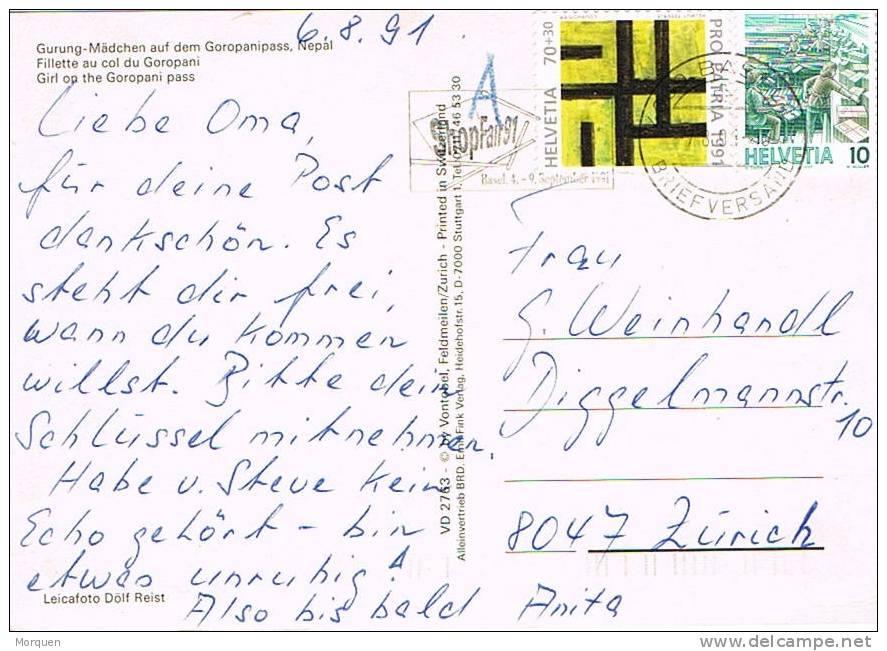 6.8.91
Gurung-Mädchen auf dem Goropanipass, Nepal
Fillette au col du Goropani
Girl on the Goropani pass
Liebe Oma,
für deine Post
dankschön. Es
steht dir frei,
wann du kommen
willst. Bitte dein
Schlüssel mitnehmen.
Habe v. Steve kein
Echo gehört – bin
etwas unruhig!
Also bis bald Anita
Leicafoto Dölf Reist
VD 2763 - © by Vontobel, Feldmeilen/Zurich - Printed in Switzerland
Alleinvertrieb BRD. Emil Fink Verlag, Heidehofstr.15, D-7000 Stuttgart 1, 46 53 30
A
Basel, 4. – 9. September 1991
HELVETIA 70+30
PRO PATRIA 1991
HELVETIA 10
BRIEFVERSAND
Frau
G. Weinhandl
Diggelmannstr.
10
8047 Zürich
Morquen
delcampe.net